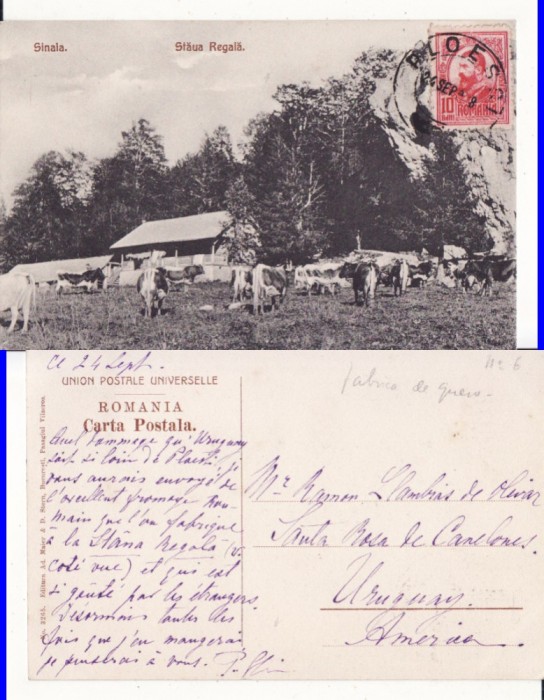 Sinaia.
Stâna Regală.
PLOESCI
24 SEP
10
BANI
ROMANIA
Ce 24 Sept.
UNION POSTALE UNIVERSELLE
ROMANIA
Carta Postala.
Quel dommage qu'Uruguay
soit si loin de Ploesti, je
vous aurais envoyé de
l'excellent fromage Rou-
main que l'on fabrique
à la Stana Regală (v.
coté vue) et qui est
si goûté par les étrangers.
Désormais toutes les
fois que j'en mangerai
je penserai à vous.
No 6
fabrica de queso.
Mr Ramon Llambias de Olivar
Santa Rosa de Canelones.
Uruguay.
América
Editura Ad. Maier & D. Stern, Bucuresti, Pasagiul Vilacros.